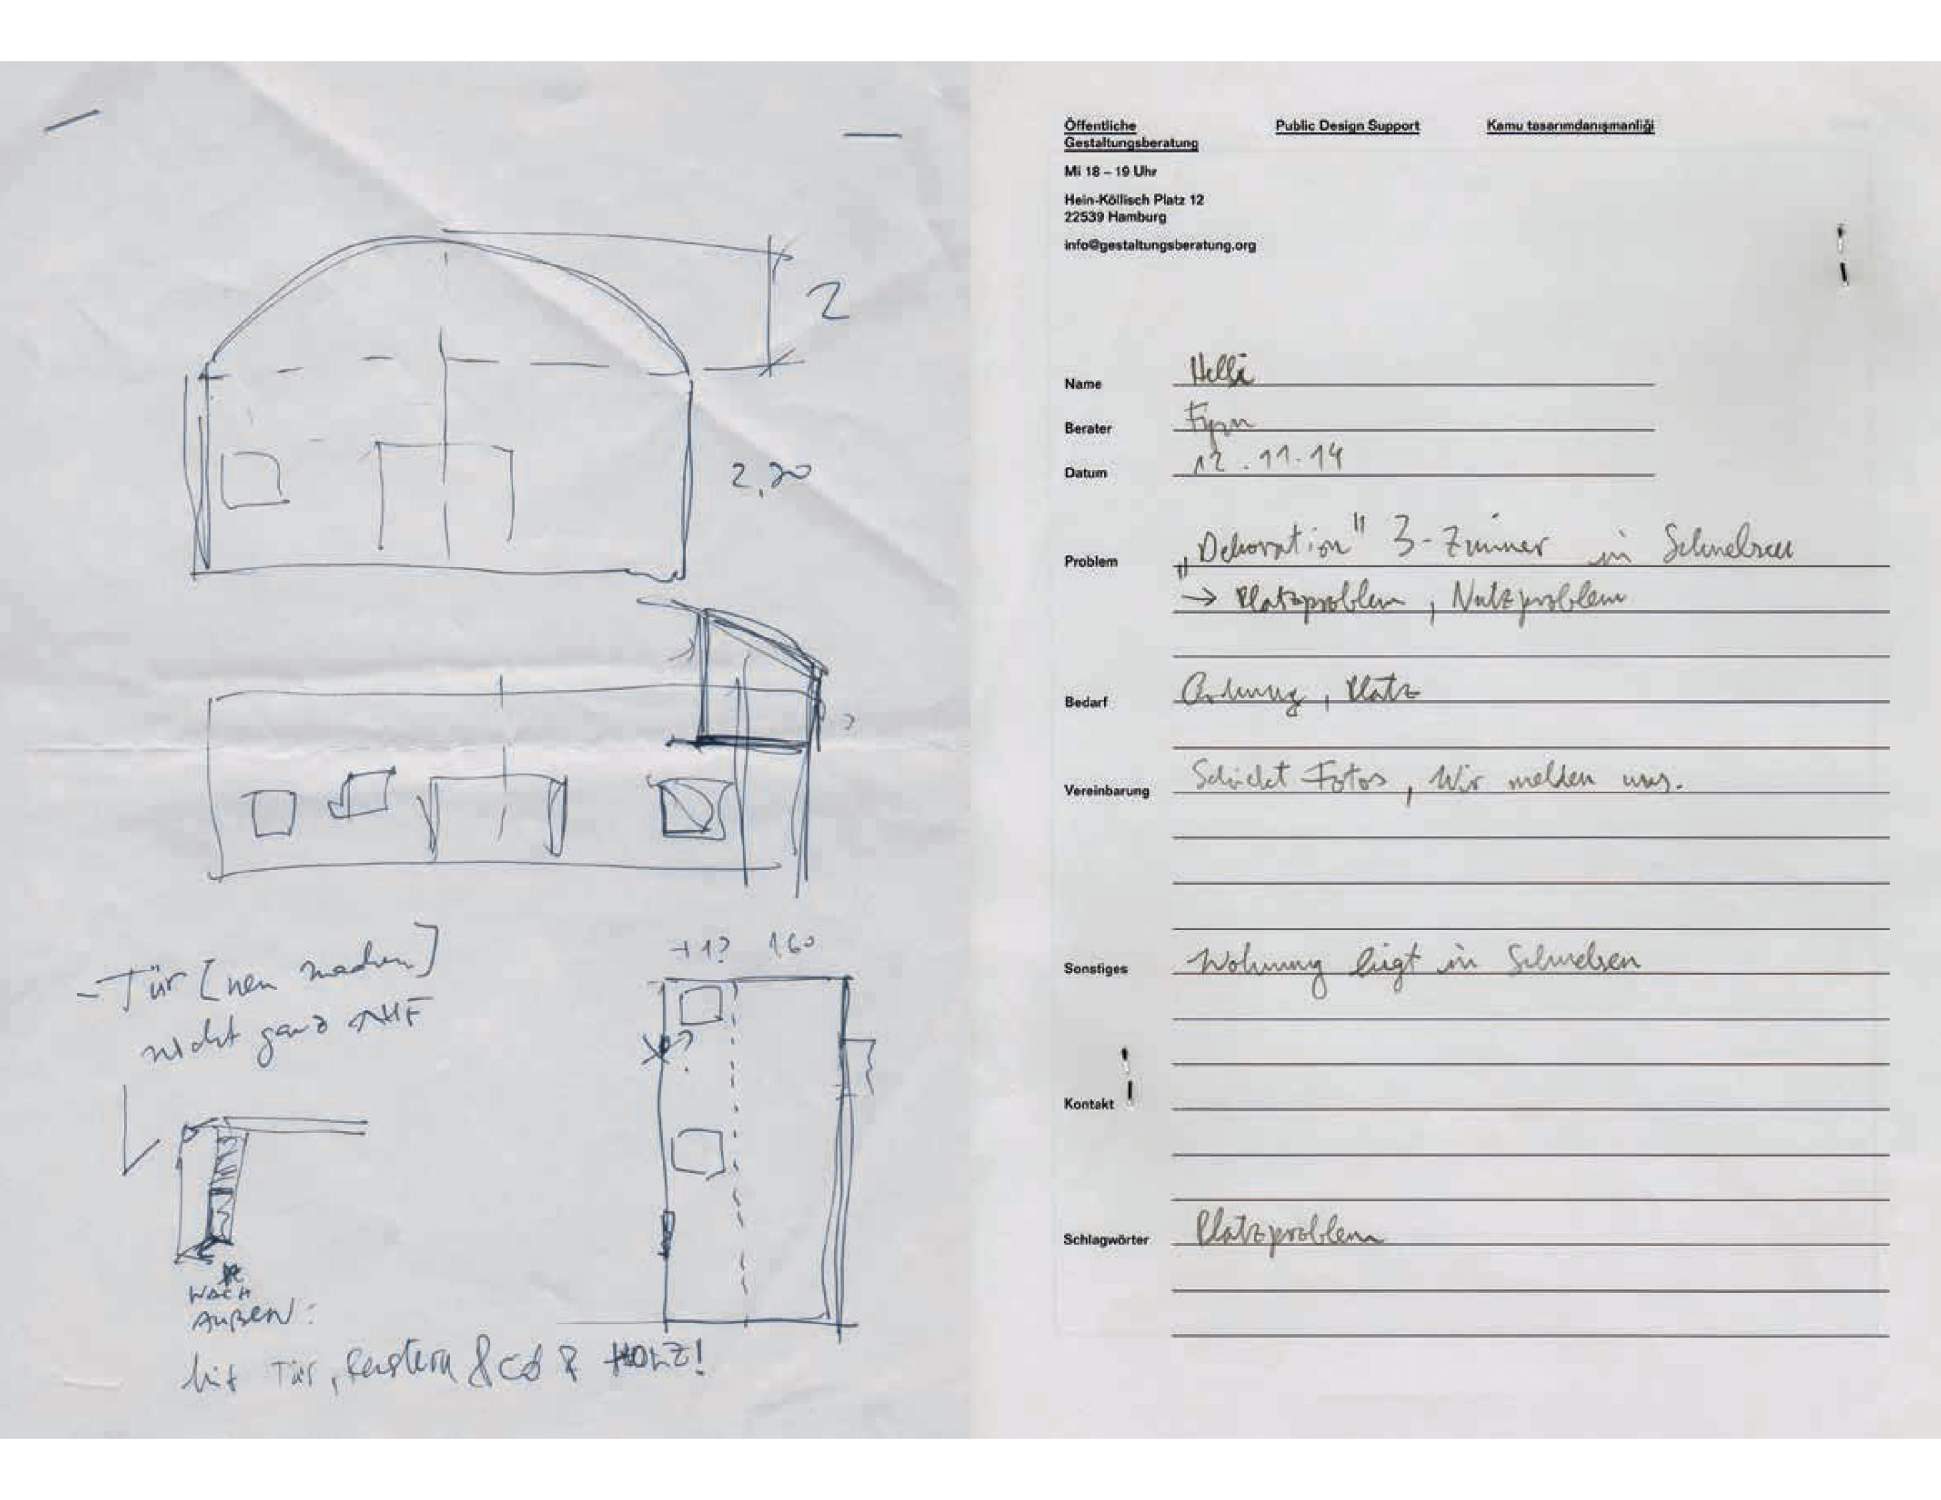 2
2,20
- Tür [neu machen]
nicht ganz
+1? 1.60
?
?
NACH
AUßEN:
mit Tür, Fenstern & HOLZ!
Öffentliche
Gestaltungsberatung
Public Design Support
Kamu tasarımdanışmanliği
Mi 18 – 19 Uhr
Hein-Köllisch Platz 12
22539 Hamburg
info@gestaltungsberatung.org
Name
Berater
Datum 12.11.14
Problem „Dekoration" 3-Zimmer in
→ Platzproblem, Nutzproblem
Bedarf Ordnung, Platz
Vereinbarung Schickt Fotos, Wir melden uns.
Sonstiges Wohnung liegt in Schnelsen
Kontakt
Schlagwörter Platzproblem